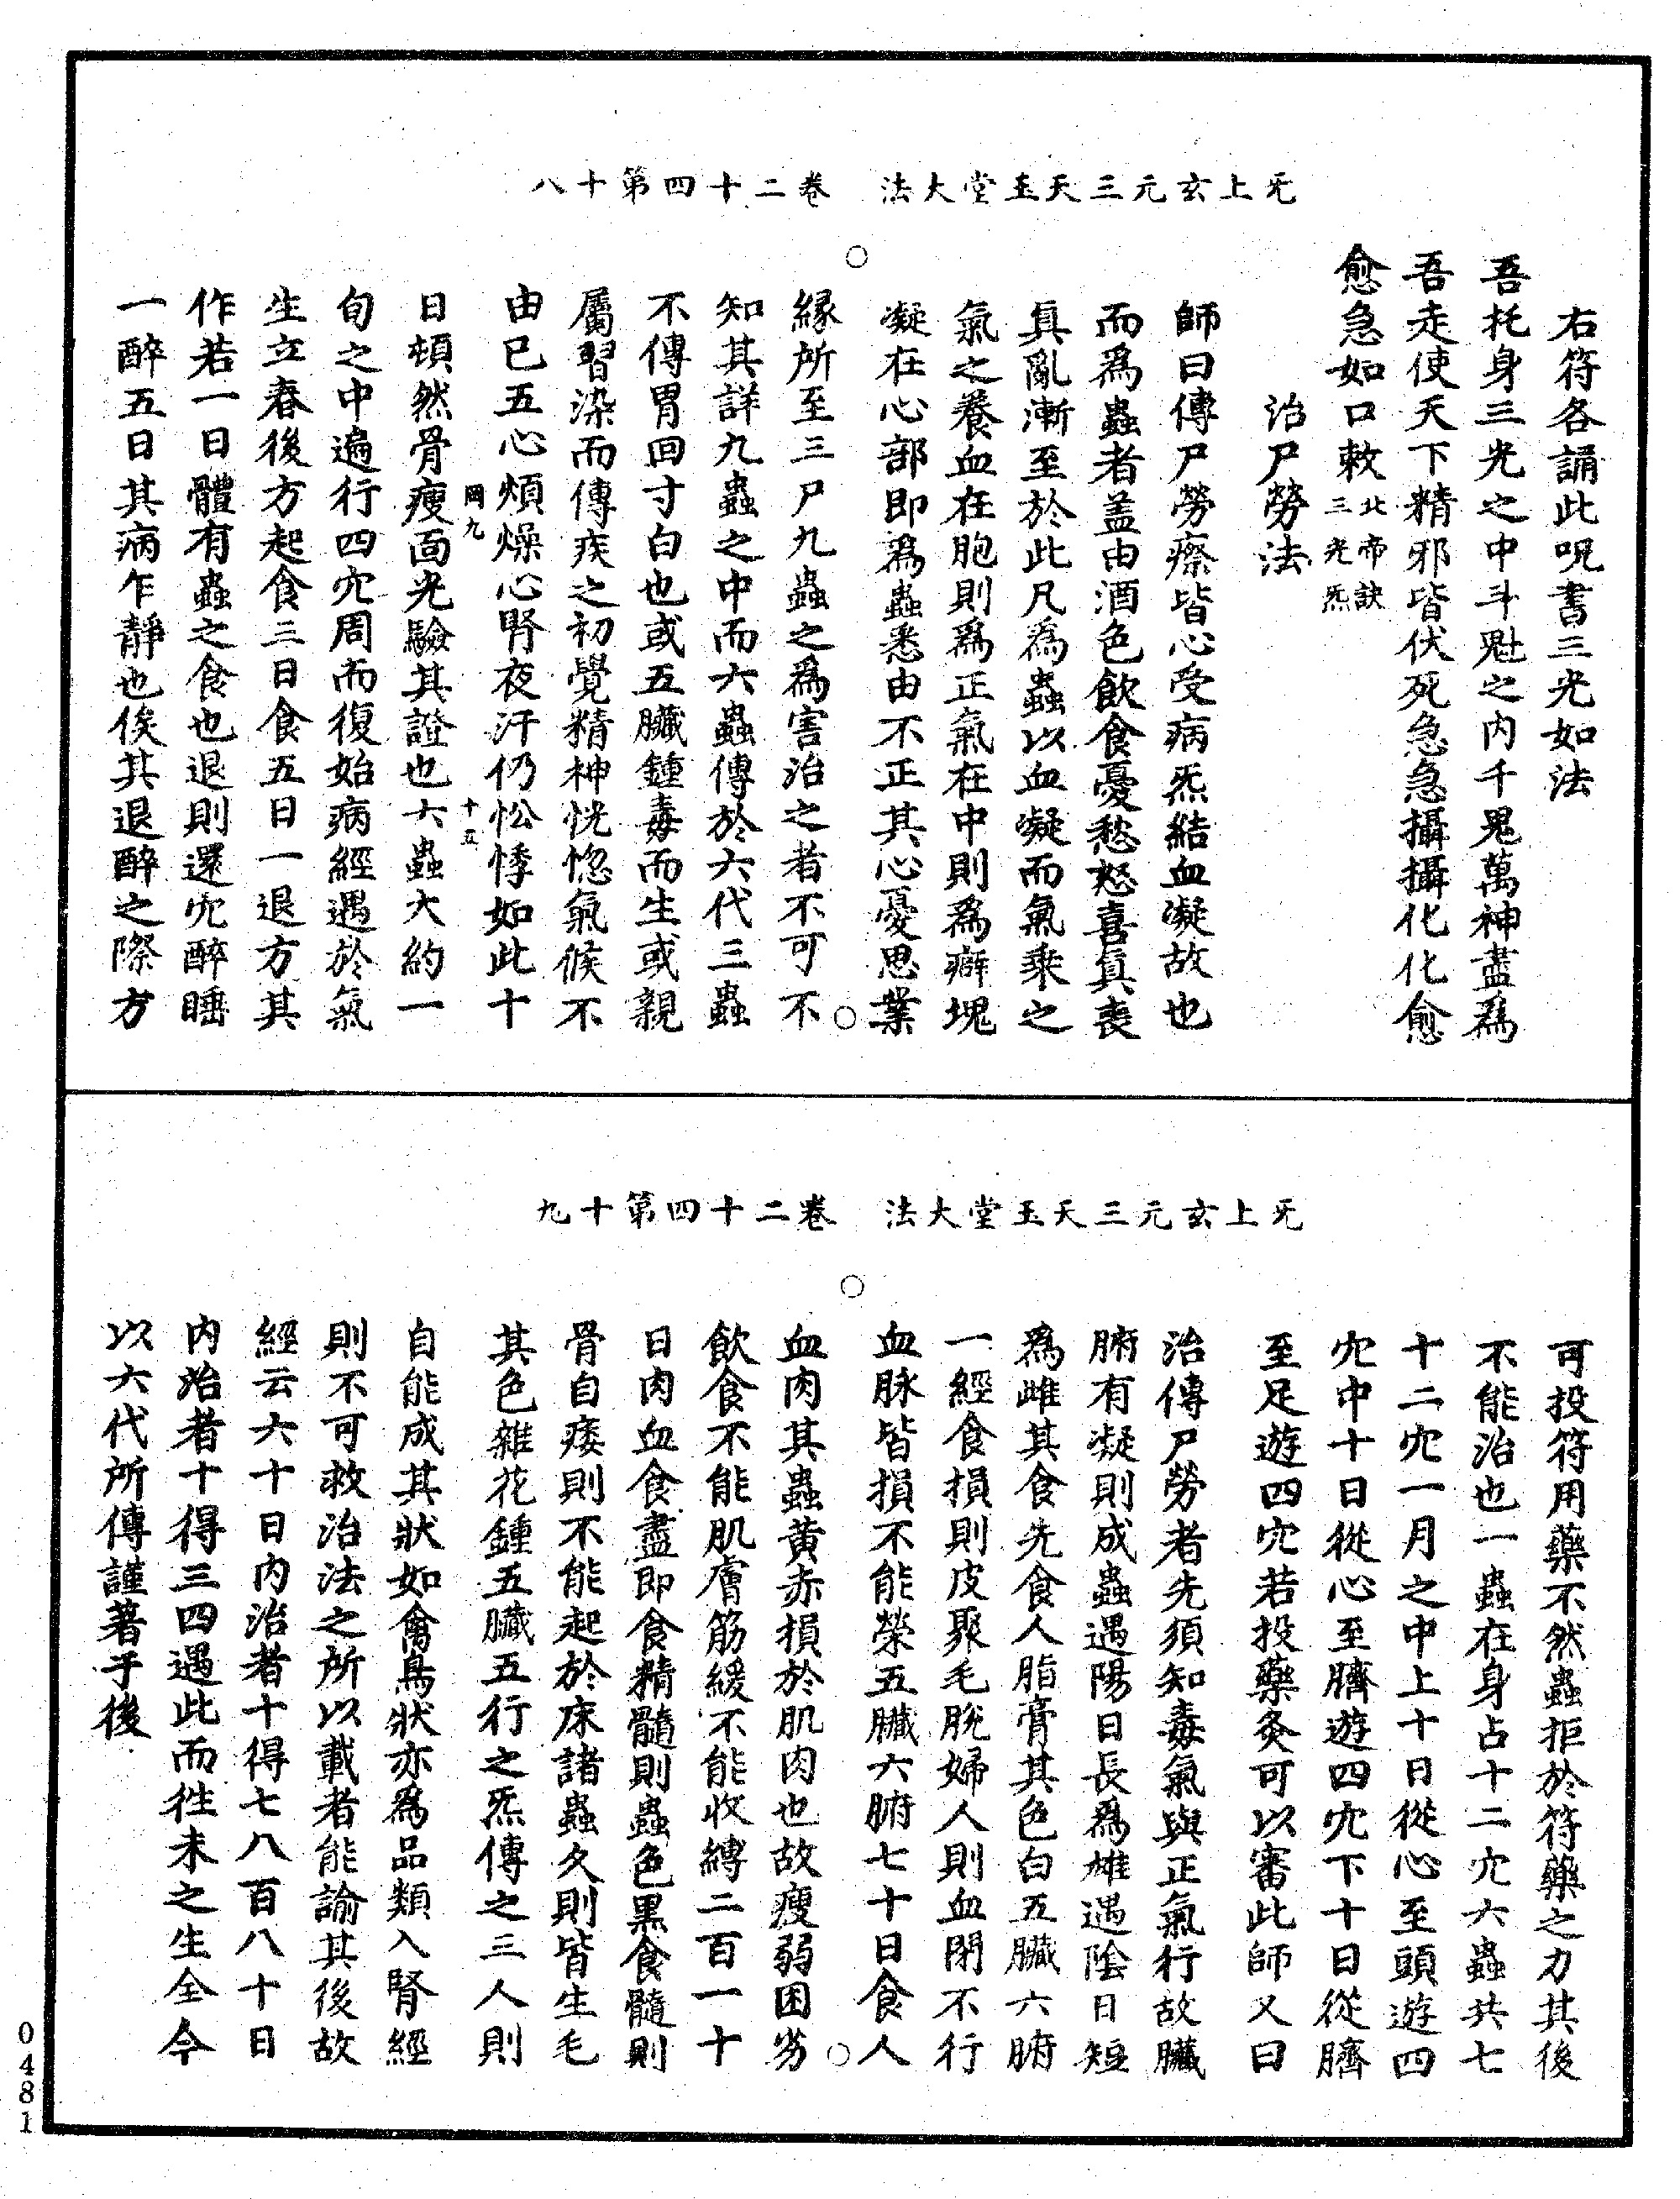 无上玄元三天玉堂大法　卷二十四第十八
右符各誦此呪書三光如法
吾托身三光之中斗魁之内千鬼萬神盡爲
吾走使天下精邪皆伏死急急攝攝化化愈
愈急如口敕北帝訣三光炁
治尸勞法
師曰傳尸勞瘵皆心受病炁結血凝故也
而爲蟲者盖由酒色飲食憂愁怒喜真喪
真亂漸至於此凡爲蟲以血凝而氣乘之
氣之養血在胞則爲正氣在中則爲癖塊
凝在心部即爲蟲悉由不正其心憂思業
緣所至三尸九蟲之爲害治之者不可不
知其詳九蟲之中而六蟲傳於六代三蟲
不傳胃回寸白也或五臟鍾毒而生或親
屬習染而傳疾之初覺精神恍惚氣候不
由已五心煩燥心腎夜汗仍忪悸如此十
罔九　十五
日頓然骨瘦面光驗其證也六蟲大約一
旬之中遍行四穴周而復始病經遇於氣
生立春後方起食三日食五日一退方其
作若一日體有蟲之食也退則還穴醉睡
一醉五日其病乍靜也俟其退醉之際方
无上玄元三天玉堂大法　卷二十四第十九
可投符用藥不然蟲拒於符藥之力其後
不能治也一蟲在身占十二穴六蟲共七
十二穴一月之中上十日從心至頭遊四
穴中十日從心至臍遊四穴下十日從臍
至足遊四穴若投藥灸可以審此師又曰
治傳尸勞者先須知毒氣與正氣行故臟
腑有凝則成蟲遇陽日長爲雄遇陰日短
爲雌其食先食人脂膏其色白五臟六腑
一經食損則皮聚毛脫婦人則血閉不行
血脉皆損不能榮五臟六腑七十日食人
血肉其蟲黄赤損於肌肉也故瘦弱困劣
飲食不能肌膚筋緩不能收縛二百一十
日肉血食盡即食精髓則蟲色黑食髓則
骨自痿則不能起於床諸蟲久則皆生毛
其色雜花鍾五臟五行之炁傳之三人則
自能成其狀如禽鳥狀亦爲品類入腎經
則不可救治法之所以載者能諭其後故
經云六十日内治者十得七八百八十日
内治者十得三四遇此而徃未之生全今
以六代所傳謹著于後
0481